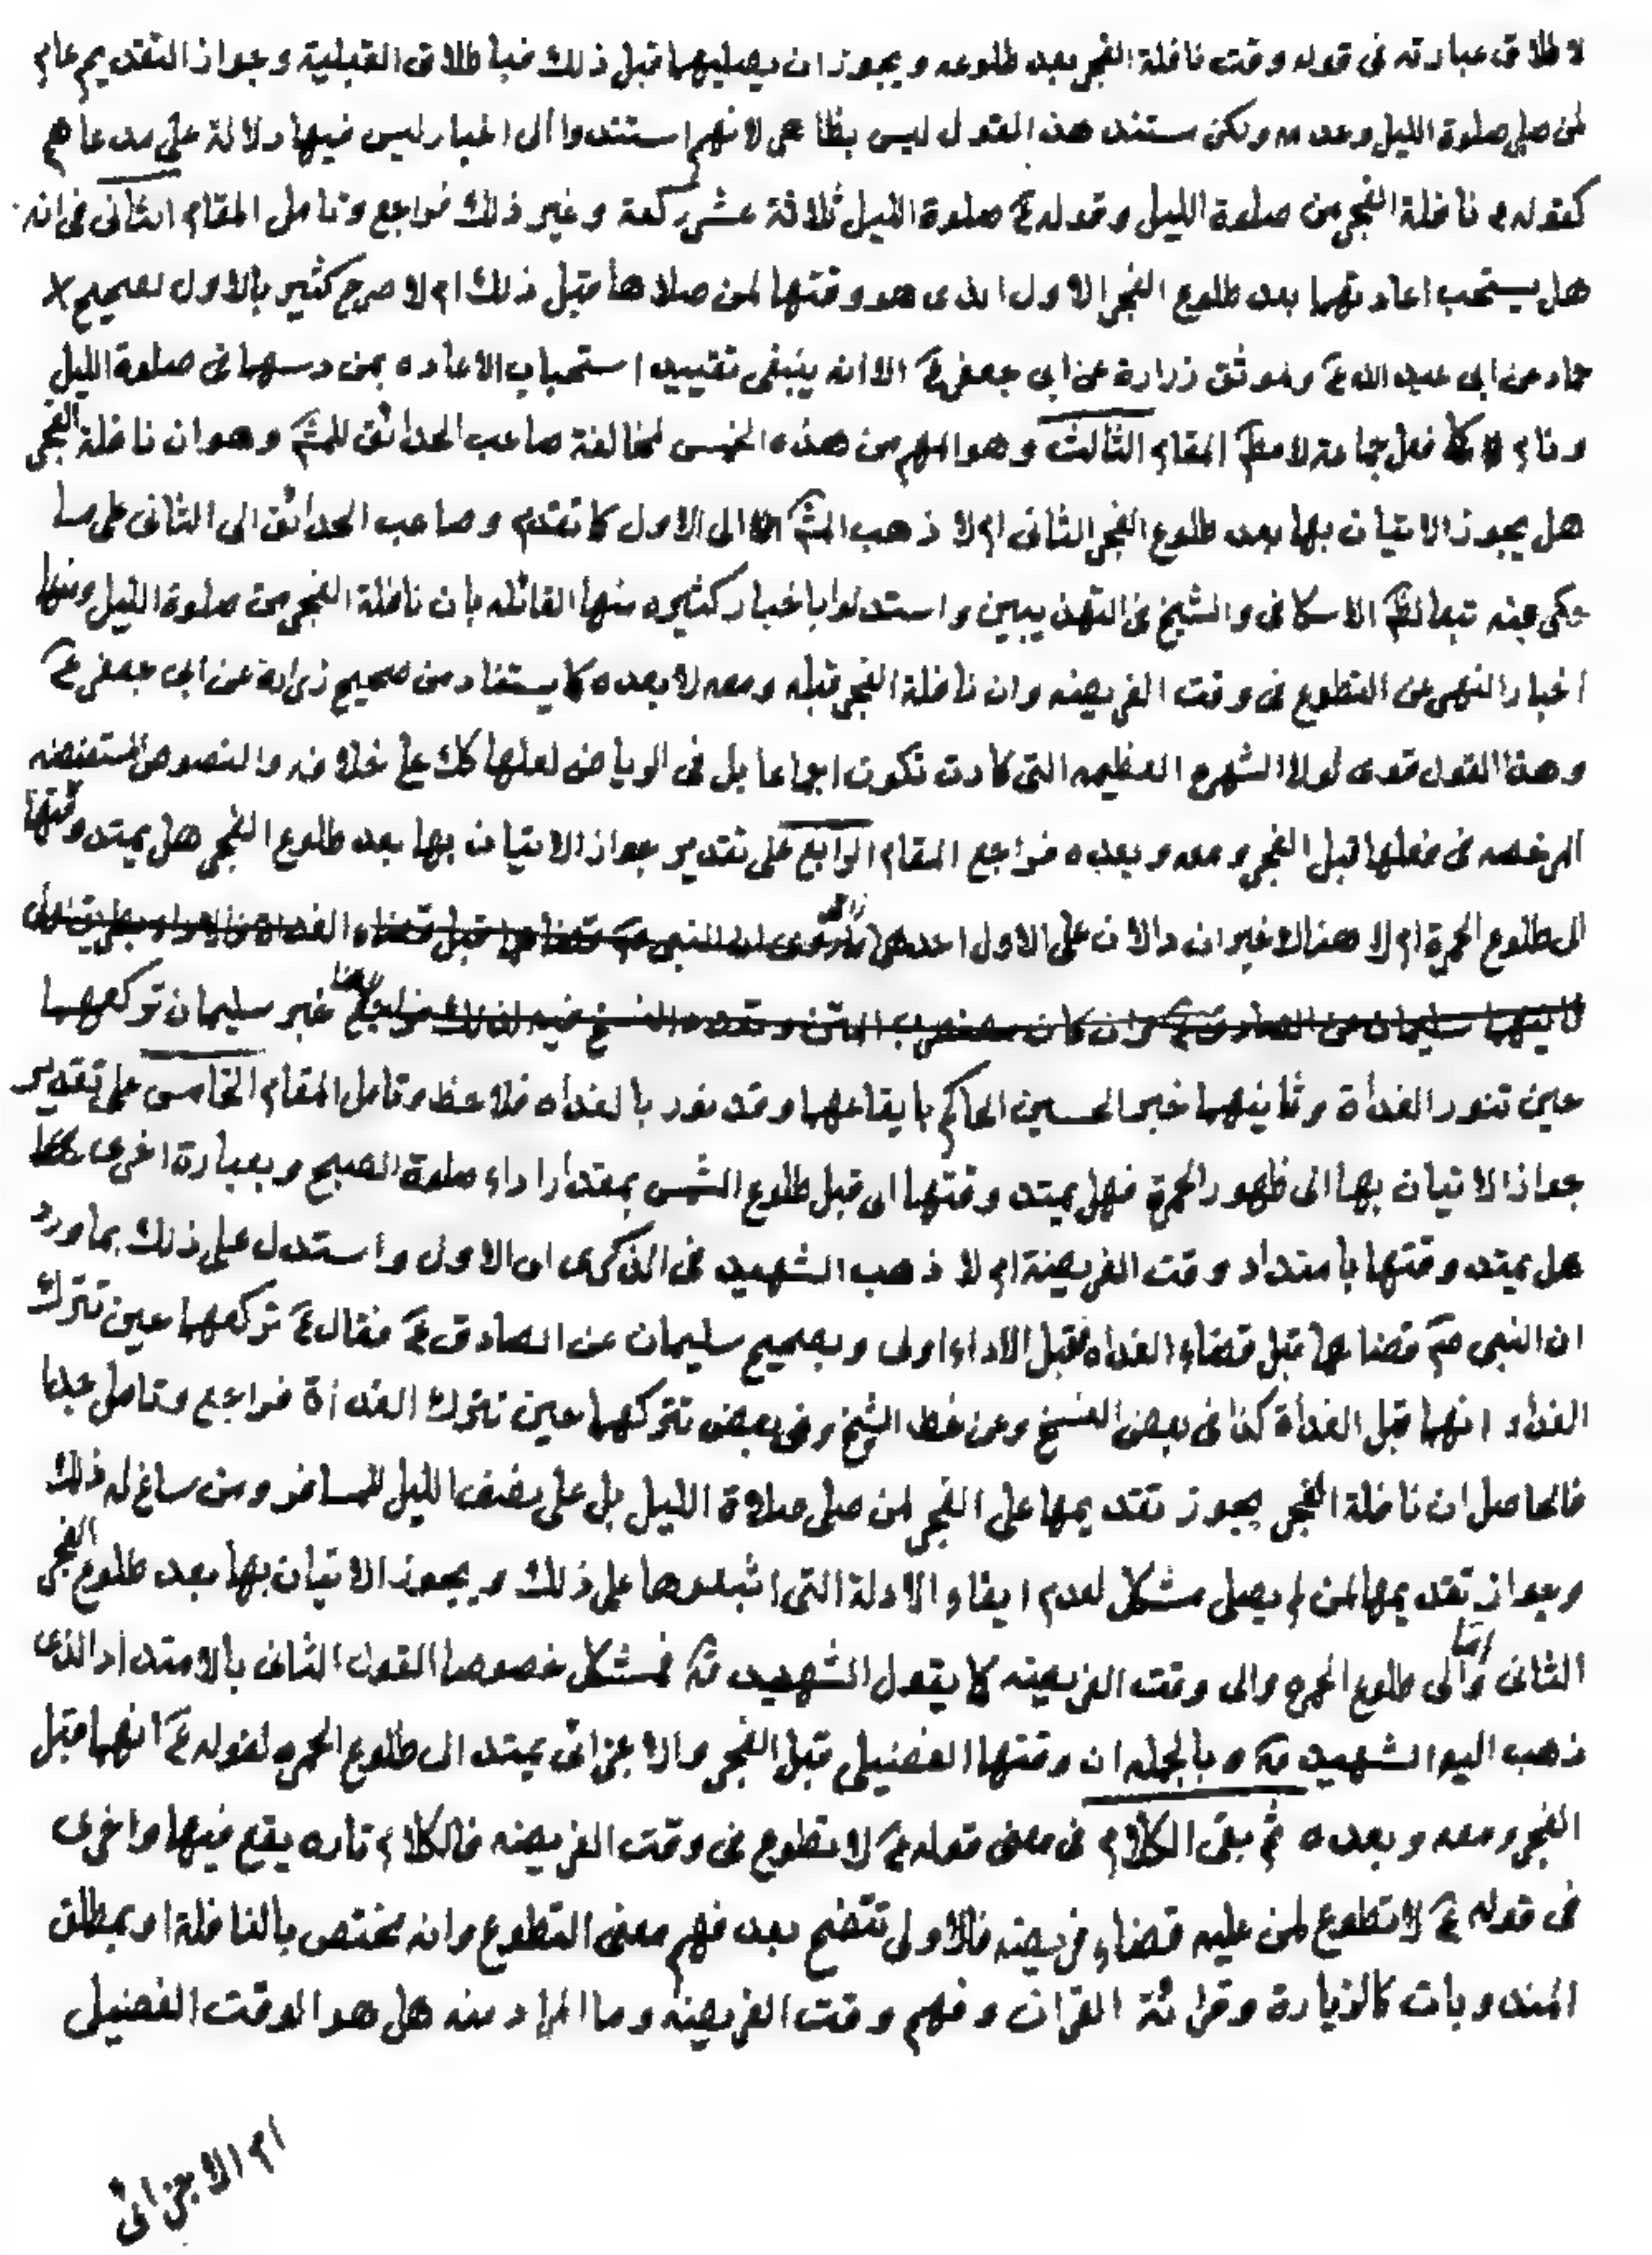 لاطلاق عبارته في قوله وقت نافلة الفجر بعد طلوعه ويجوز ان يصليهما قبل ذلك فباطلاق القبلية وجواز التقديم عام
لمن صلى صلوة الليل وعدمه ولكن مستند هذا القول ليس بظاهر لانهم استندوا الى اخبار ليس فيها دلالة على مدعاهم
كقوله ع نافلة الفجر من صلوة الليل وقوله ع صلوة الليل ثلاثة عشر ركعة وغير ذلك فراجع وتامل المقام الثاني في انه
هل يستحب اعادتهما بعد طلوع الفجر الاول الذي هو وقتها لمن صلاها قبل ذلك ام لا صرح كثير بالاول لصحيح
حماد عن ابي عبد الله ع وموثق زرارة عن ابي جعفر ع الا انه ينبغي تقييد استحباب الاعاده بمن دسها في صلوة الليل
ونام كما فعل جماعة لا مطلقا المقام الثالث وهو المهم من هذه الخمس لمخالفة صاحب الحدائق للمشهور وهو ان نافلة الفجر
هل يجوز الاتيان بها بعد طلوع الفجر الثاني ام لا ذهب المشهور الى الاول كما تقدم وصاحب الحدائق الى الثاني على ما
حكى عنه تبعا الاسكافي والشيخ في التهذيبين واستدلوا باخبار كثيره منها القائله بان نافلة الفجر من صلوة الليل ومنها
اخبار النهى عن التطوع في وقت الفريضه وان نافلة الفجر قبله ومعه لا بعده كما يستفاد من صحيح زراره عن ابي جعفر ع
وهذا القول قوى لولا الشهره العظيمه التي كادت تكون اجماعا بل في الرياض لعلها كك على خلافه والنصوص المستفيضه
المرخصه في فعلها قبل الفجر ومعه وبعده فراجع المقام الرابع على تقدير جواز الاتيان بها بعد طلوع الفجر هل يمتد وقتها
الى طلوع الحمرة ام لا هنا لا خبران دالان على الاول احدهما ما روى ان النبي ص قضاهما قبل قضاء الغداة
ثانيهما سليمان عن الصادق ع وان كان النسخ فيه لذلك فراجع خبر سليمان تركعهما
حين تنور الغداة وثانيهما خبر الحسين الحاكم بايقاعهما وقد نور بالغداه فلاحظ وتامل المقام الخامس على تقدير
جواز الاتيان بها الى ظهور الحمرة فهل يمتد وقتها الى قبل طلوع الشمس بمقدار اداء صلوة الصبح وبعبارة اخرى
هل يمتد وقتها بامتداد وقت الفريضة ام لا ذهب الشهيد في الذكرى الى الاول واستدل على ذلك بما ورد
ان النبي ص قضاهما قبل قضاء الغداه فقبل الاداء اولى وبصحيح سليمان عن الصادق ع فقال ع تركعهما حين تترك
الغداه انهما قبل الغداة كذا في بعض النسخ وعن خط الشيخ وفي بعض تتركهما حين تترك الغداة فراجع وتامل جدا
فالحاصل ان نافلة الفجر يجوز تقديمها على الفجر لمن صلى صلاة الليل بل على نصف الليل للمسافر ومن ساغ له ذلك
وجواز تقديمها لمن لم يصلى مشكل لعدم ايفاء الادلة التي اثبتوها على ذلك ويجوز الاتيان بها بعد طلوع الفجر
الثاني واما الى طلوع الحمره والى وقت الفريضه كما يقول الشهيد ره فمشكل خصوصا القول الثاني بالامتداد الذى
ذهب اليه الشهيد ره وبالجمله ان وقتها الفضيلى قبل الفجر والاجزائى يمتد الى طلوع الحمره لقوله ع انهما قبل
الفجر ومعه وبعده ثم بقى الكلام في معنى قوله ع لا تطوع في وقت الفريضه فالكلام تاره يقع فيها واخرى
في قوله ع لا تطوع لمن عليه قضاء فريضه فالاولى تتضح بعد فهم معنى التطوع وانه مختص بالنافلة او بمطلق
المندوبات كالزيارة وقرائة القران وفهم وقت الفريضه وما المراد منه هل هو الوقت الفضيلى
ام الاجزائى